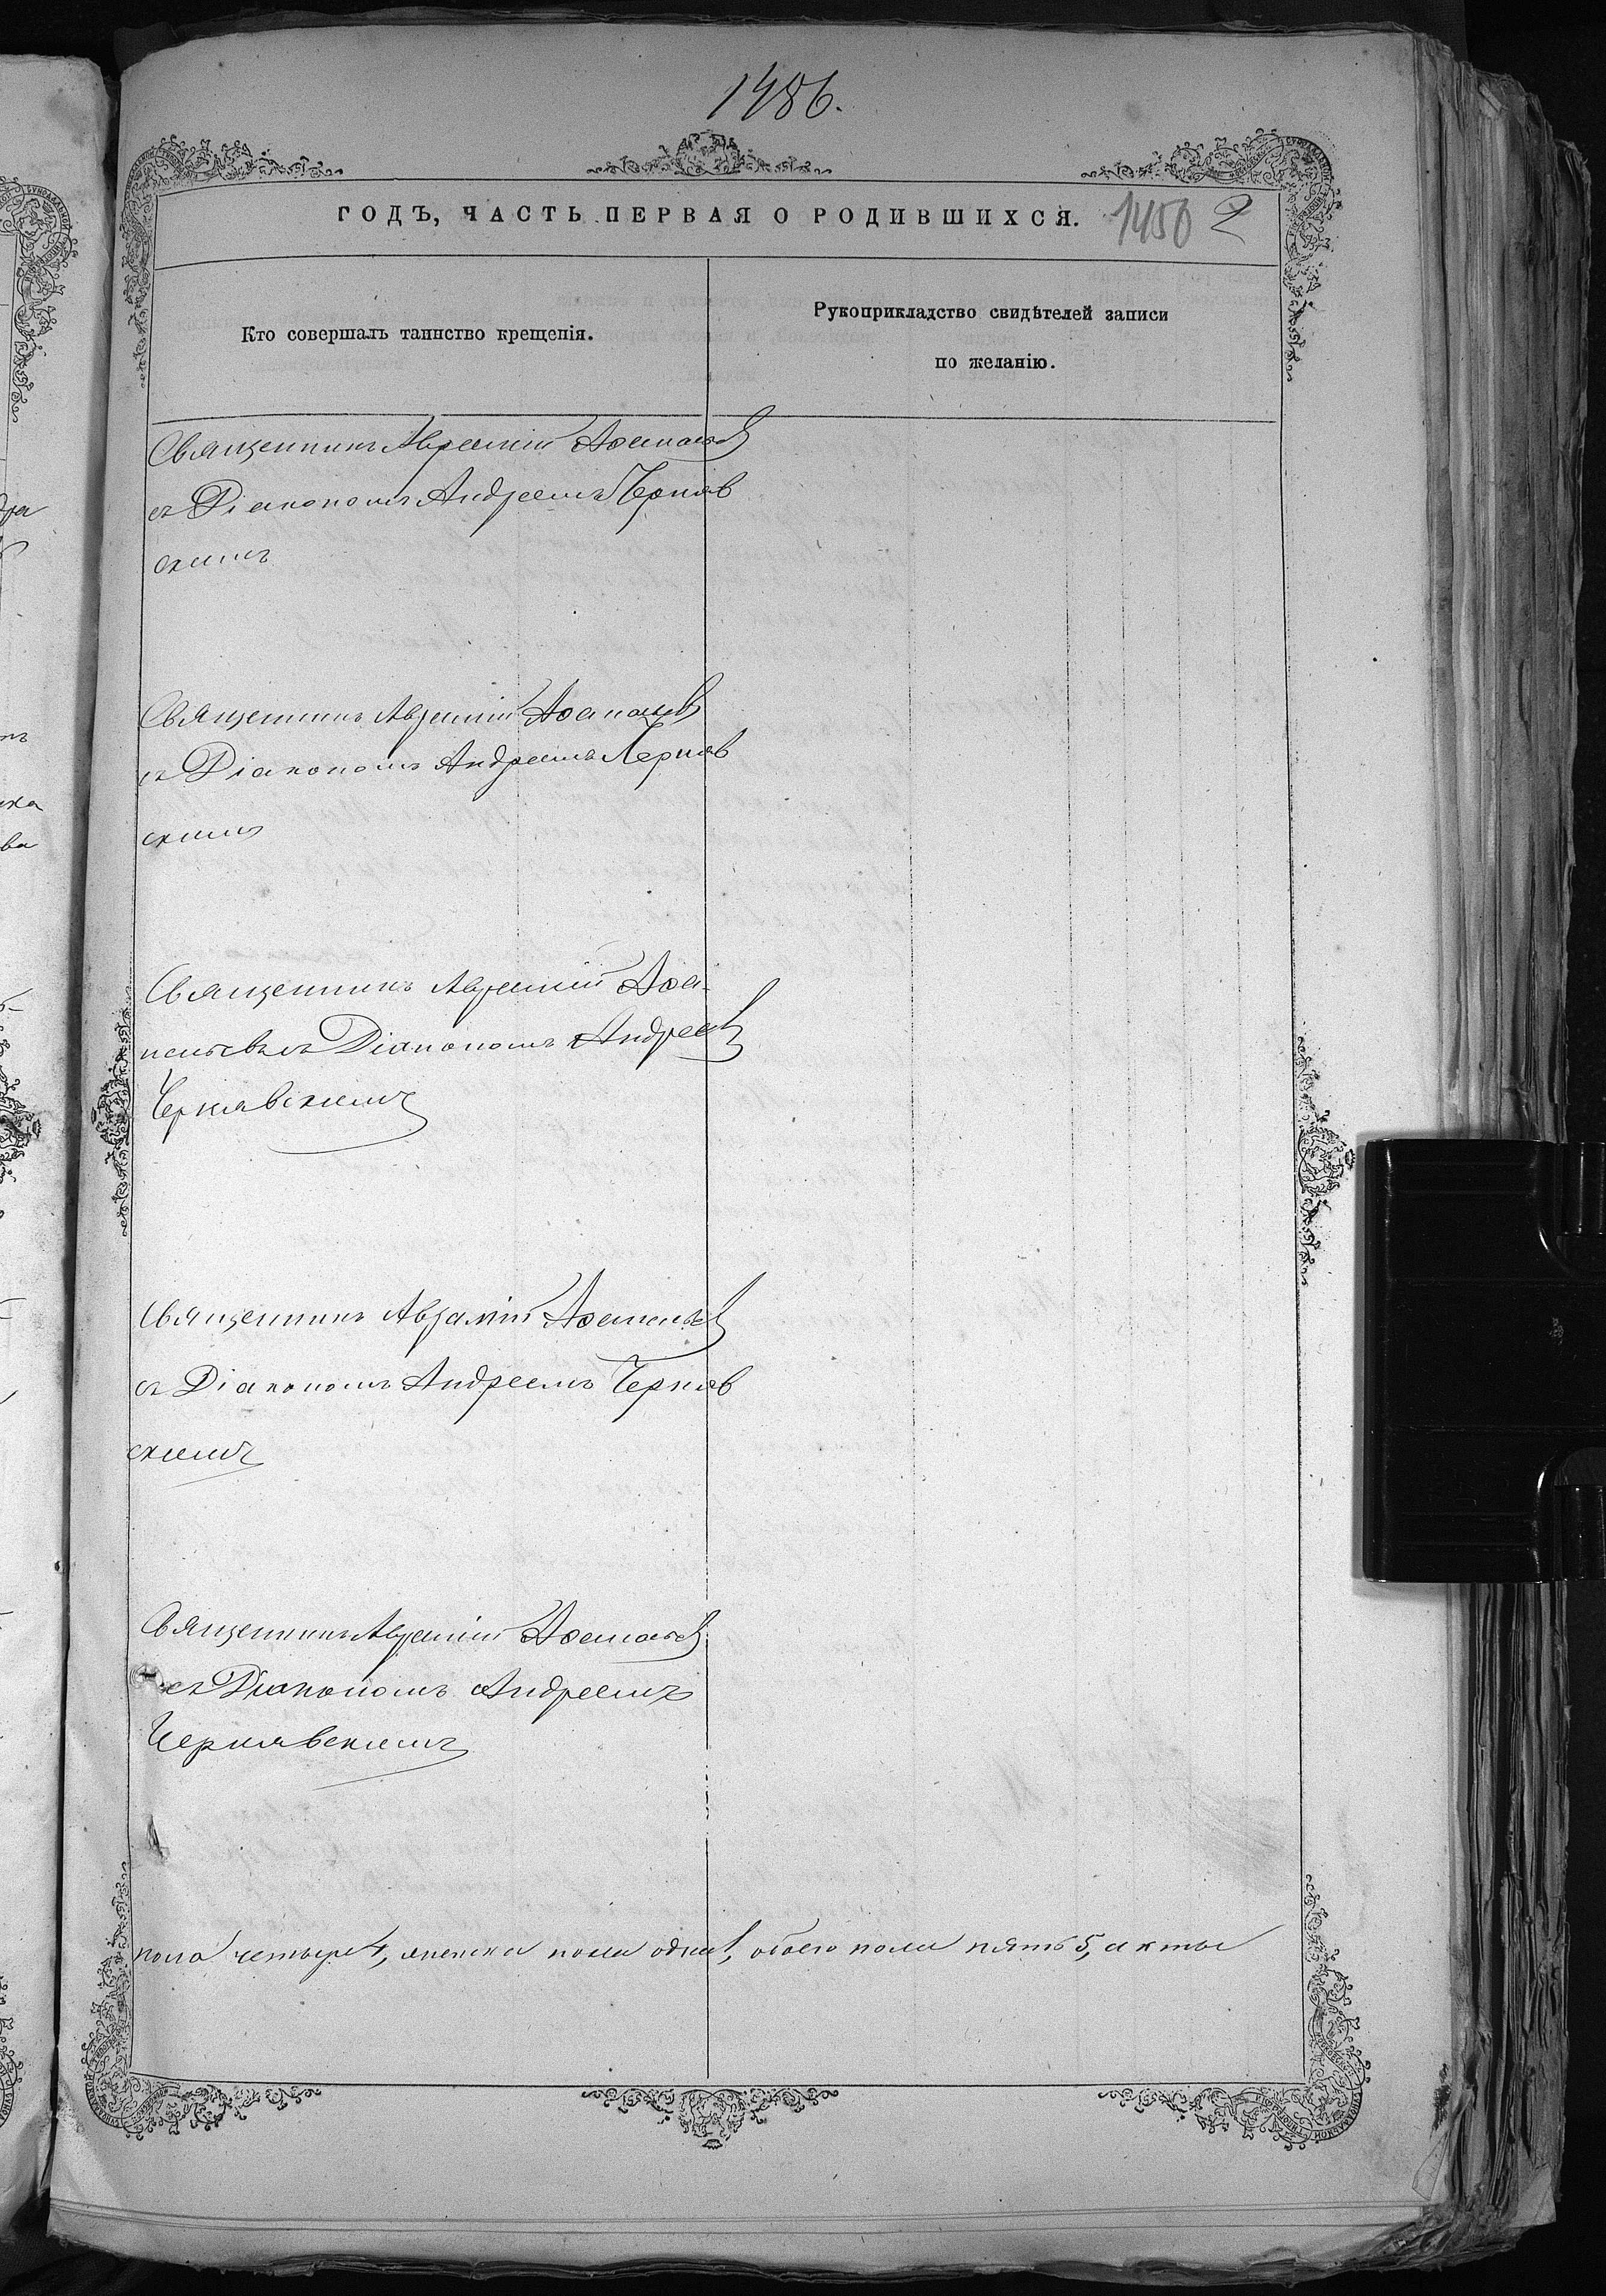 1486.
ГОДЪ, ЧАСТЬ ПЕРВАЯ О РОДИВШИХСЯ.
1450 2
Кто совершалъ таинство крещенія.
Рукоприкладство свидѣтелей записи
по желанію.
Священникъ Аврамій Аѳанасьев
съ Діакономъ Андреемъ Черняв
скимъ
Священникъ Аврамій Аѳанасьев
съ Діакономъ Андреемъ Черняв
скимъ
Священникъ Аврамій Аѳа-
насьевъ съ Діакономъ Андреем
Чернявскимъ
Священникъ Аврамій Аѳанасьев
съ Діакономъ Андреемъ Черняв
скимъ
Священникъ Аврамій Аѳанасьев
съ Діакономъ Андреемъ
Чернявскимъ
пола четыре 4, женска пола одна 1, обоего пола пять 5, акты